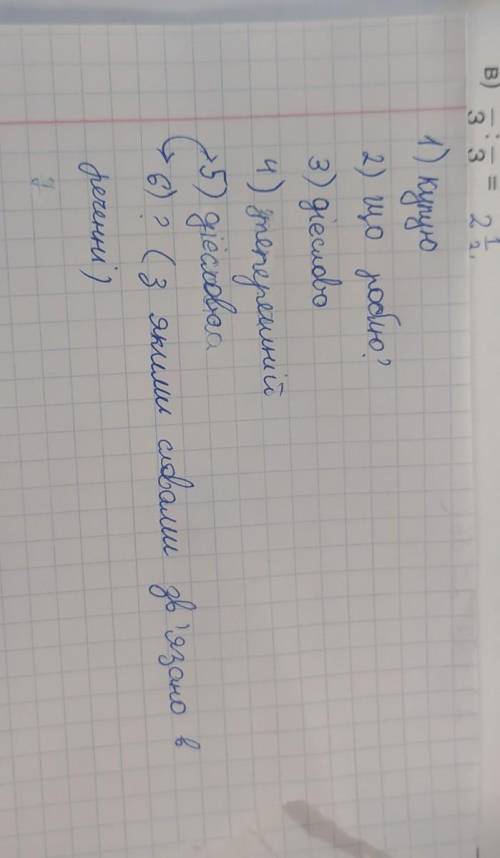 в) 3 : 3 = 2 1/2.
1)
2) що роблю?
3) дієслово
4) теперішній
5) дієслова
6) ? (З якими словами зв'язано в
реченні)